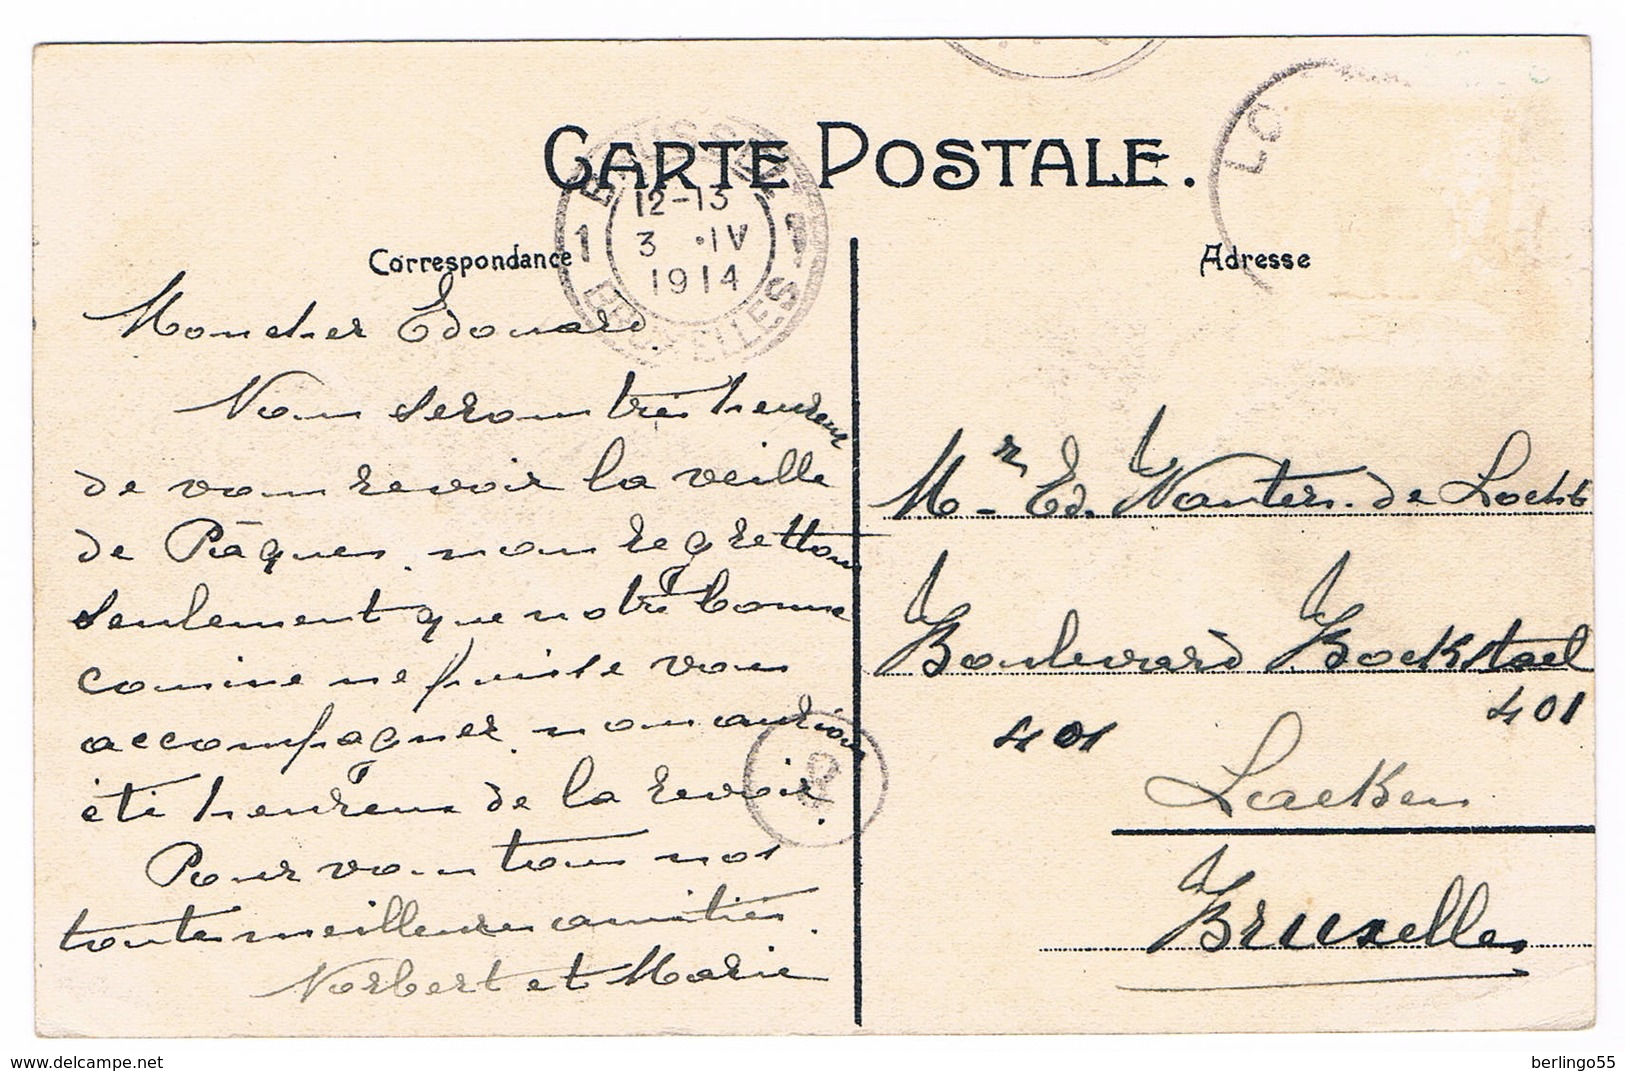 CARTE POSTALE.
BRUSSEL
12-13
3 ·IV
1914
1 1
BRUXELLES
LO
Correspondance
Adresse
Mon cher Edouard.
Nous serons très heureux
de vous revoir la veille
de Pâques, nous regrettons
seulement que notre bonne
cousine ne puisse vous
accompagner, nous aurions
été heureux de la revoir.
Pour vous tous nos
toutes meilleures amitiés.
Norbert et Marie
Mr Ed. Wauters. de
Boulevard Bockstael
401
401
Laeken
Bruxelles
delcampe.net
berlingo55